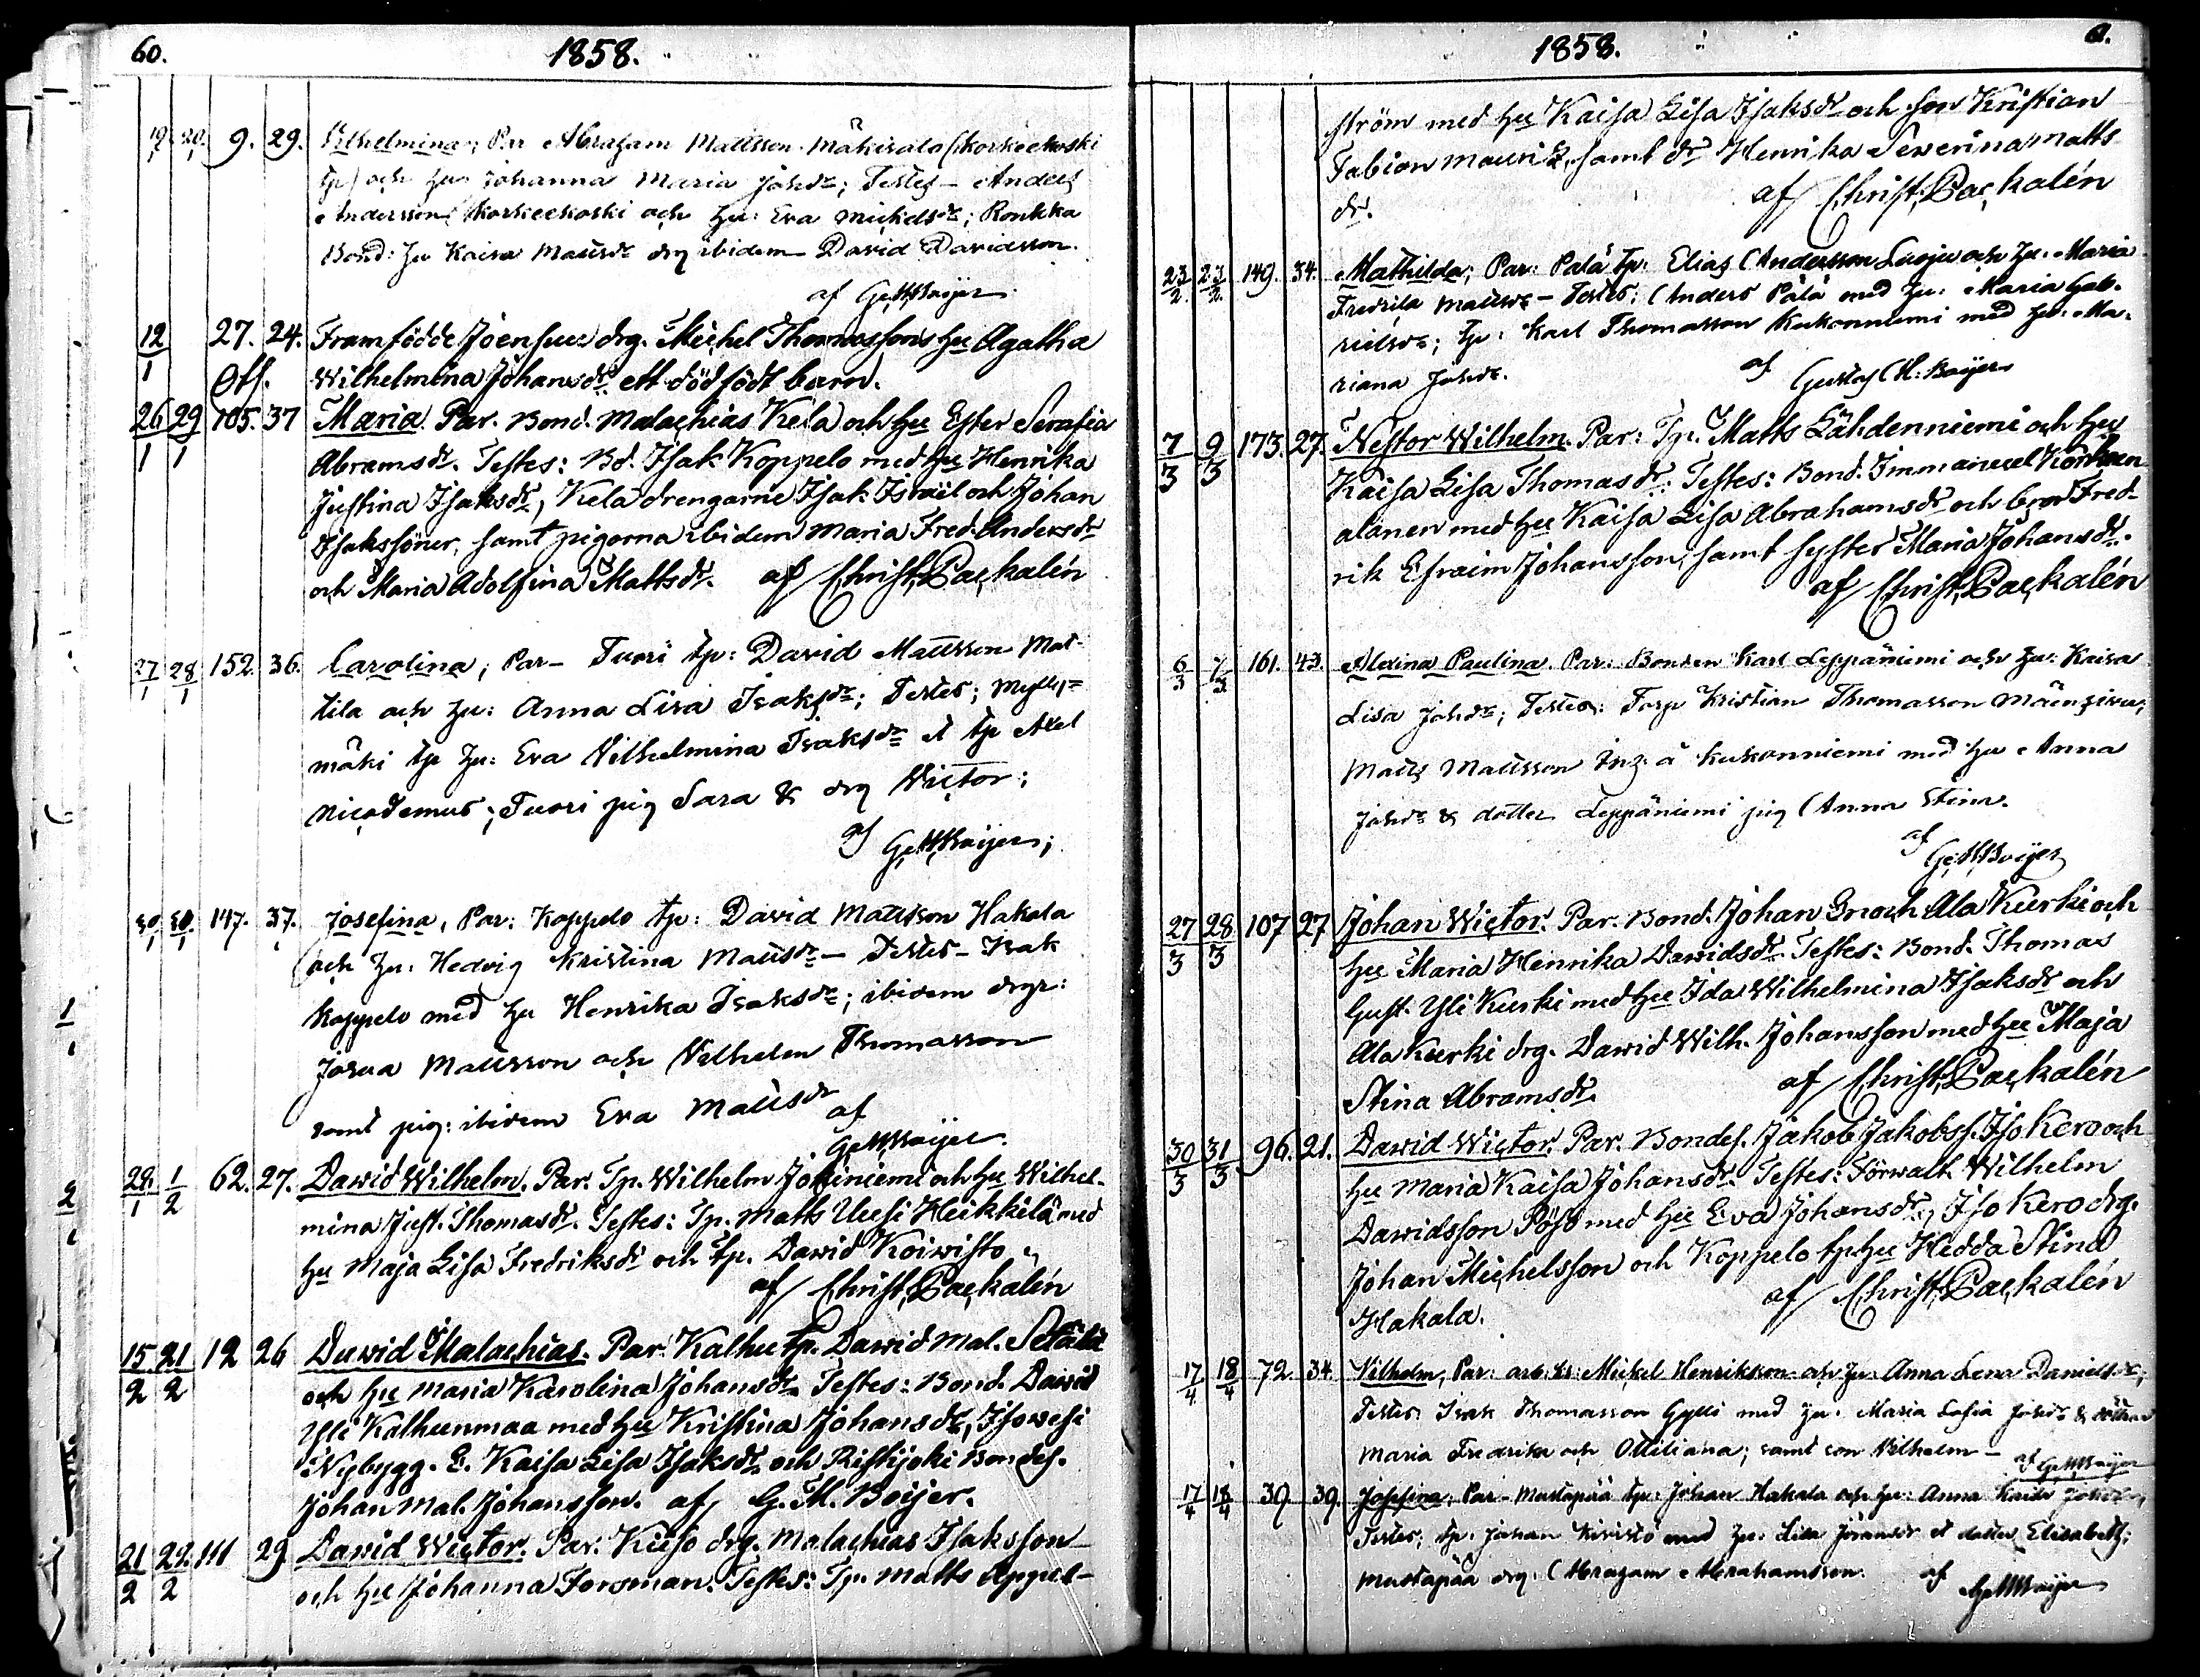 60. 1858.
19/1 20/1 9. 29. Vilhelmina; Par Abraham Mattsson Mäkisalo (Korkeekoski
tp) och hu: Johanna Maria Johsdr; Testes - Anders
Andersson Korkeekoski och hu: Eva Mickelsdr; Ronkka
Bond: hu Kaisa Mattsdr drg ibidem David Davidsson.
af G. M. Boijer
12/1 27. 24. Framfödde Joensuu drg. Michel Thomassons hu Agatha
Off. Wilhelmina Johansdr ett dödfödt barn.
26/1 29/1 105. 37 Maria. Par. Bond. Malachias Kela och hu Ester Serafia
Abramsdr. Testes: Bd. Isak Koppelo med hu Henrika
Justina Isaksdr, Kela drengarne Isak Israël och Johan
Isakssöner, samt pigorna ibidem Maria Fred. Andersdr
och Maria Adolfina Mattsdr. af Christ. Packalén
27/1 28/1 152. 36. Carolina; Par - Tuori tp: David Mattsson Mat-
tila och hu: Anna Lisa Isaksdr; Testes; Mylly-
mäki tp hu: Eva Vilhelmina Isaksdr et tp Axel
Nicodemus; Tuori pig Sara & drg Victor;
af G. M. Boijer;
30/1 30/1 147. 37. Josefina, Par: Koppelo tp: David Mattsson Hakala
och hu: Hedvig Kristina Mattsdr - Testes - Isak
Koppelo med hu Henrika Isaksdr; ibidem drgr:
Josua Mattsson och Vilhelm Thomasson
samt pig: ibidem Eva Mattsdr
af
G M Boijer.
29/1 1/2 62. 27. Dawid Wilhelm. Par. Tp. Wilhelm Jokiniemi och hu Wilhel-
mina Just. Thomasdr. Testes: Tp. Matts Uusi Heikkilä med
hu Maja Lisa Fredriksdr och tp. Dawid Koiwisto
af Christ. Packalén
15/2 21/2 12 26 Dawid Malachias. Par. Kalhu tp. Dawid Mal. Setälä
och hu Maria Karolina Johansdr. Testes: Bond. Dawid
Yli Kalhuunmaa med hu Kristina Johansdr, Isowesi
Nybygg. E. Kaisa Lisa Isaksdr och Ristijoki Bondes.
Johan Mal. Johansson. af G. M. Boijer.
21/2 22/2 111 29 Dawid Wictor. Par. Kuiso drg. Malachias Isaksson
och hu Johanna Forsman. Testes: Tp. Matts Appel-
1858. 61.
ström med hu Kaisa Lisa Isaksdr och son Kristian
Fabian Mauritz, samt dr Henrika Sewerina Matts
dr. af Christ. Packalén
23/2 23/2 149. 34. Mathilda; Par: Palà tp: Elias Andersson Luoju och hu: Maria
Fredrika Mattsdr - Testes; Anders Pälä med hu: Maria Gab-
rielsdr; tp: Karl Thomasson Kukonniemi med hu: Ma-
riana Johsdr. af
Gustaf M: Boijer
7/3 9/3 173. 27. Nestor Wilhelm. Par: Tp. Matts Lähdenniemi och hu
Kaisa Lisa Thomasdr. Testes: Bond. Immanuel
alanen med hu Kaisa Lisa Abrahamsdr och bror Fred-
rik Efraim Johansson, samt syster Maria Johansdr.
af Christ. Packalén
6/3 7/3 161. 43. Alexina Paulina. Par: Bonden Karl Leppäniemi och hu: Kaisa
Lisa Johsdr; Testes: Torp Kristian Thomasson Mäensivu;
Matts Mattsson Inh. å Kukonniemi med hu Anna
Johsdr & dotter Leppäniemi pig Anna Stina.
af
G. M. Boijer
27/3 28/3 107 27 Johan Wictor. Par. Bond. Johan Enoch Ala Kurki och
hu Maria Henrika Dawidsdr. Testes: Bond. Thomas
Gust. Yli Kurki med hu Ida Wilhelmina Isaksdr och
Ala Kurki drg. Dawid Wilh. Johansson med hu Maja
Stina Abramsdr. af Christ. Packalén
30/3 31/3 96. 21. Dawid Wictor. Par. Bondes. Jakob Jakobss. Iso Kero och
hu Maria Kaisa Johansdr. Testes: Förwalt. Wilhelm
Dawidsson Pöyö med hu Eva Johansdr, Iso Kero drg.
Johan Michelsson och Koppelo tp hu Hedda Stina
Hakala. af Christ. Packalén
17/4 18/4 72. 34. Vilhelm, Par: arb. kr: Mickel Henriksson och hu: Anna Lena Danielsdr;
Testes: Isak Thomasson Gylli med hu: Maria Sofia Johsdr & döttrar
Maria Fredrika och Ottiliana; samt son Vilhelm -
af G. M. Boijer
17/4 18/4 39 39. Josefina; Par - Mustapää tp: Johan Hakala och hu: Anna Kaisa Johsdr,
Testes; tp: Johan Kivistö med hu: Lisa Johansdr et dotter Elisabeth;
Mustapää drg. Abraham Abrahamsson. af
G M Boijer